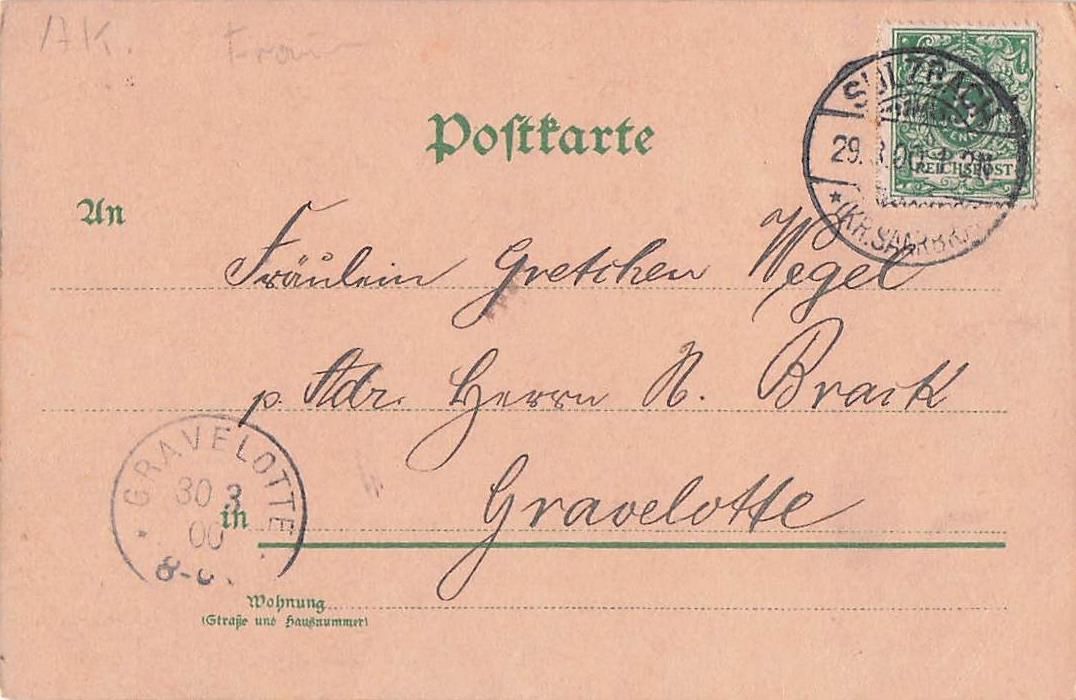 AK.
Postkarte
SULZBACH
29.3.00.1-2N
* (KR. SAARBR.
REICHSPOST
An
Fräulein Gretchen Wegel
p. Adr. Herrn N. Brack
GRAVELOTTE
30 3
00
in Gravelotte
Wohnung
(Straße und Hausnummer)